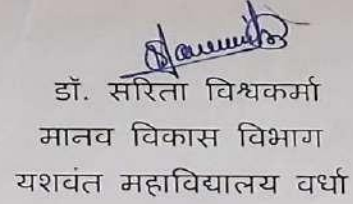 डॉ. सरिता विश्वकर्मा
मानव विकास विभाग
यशवंत महाविद्यालय वर्धा